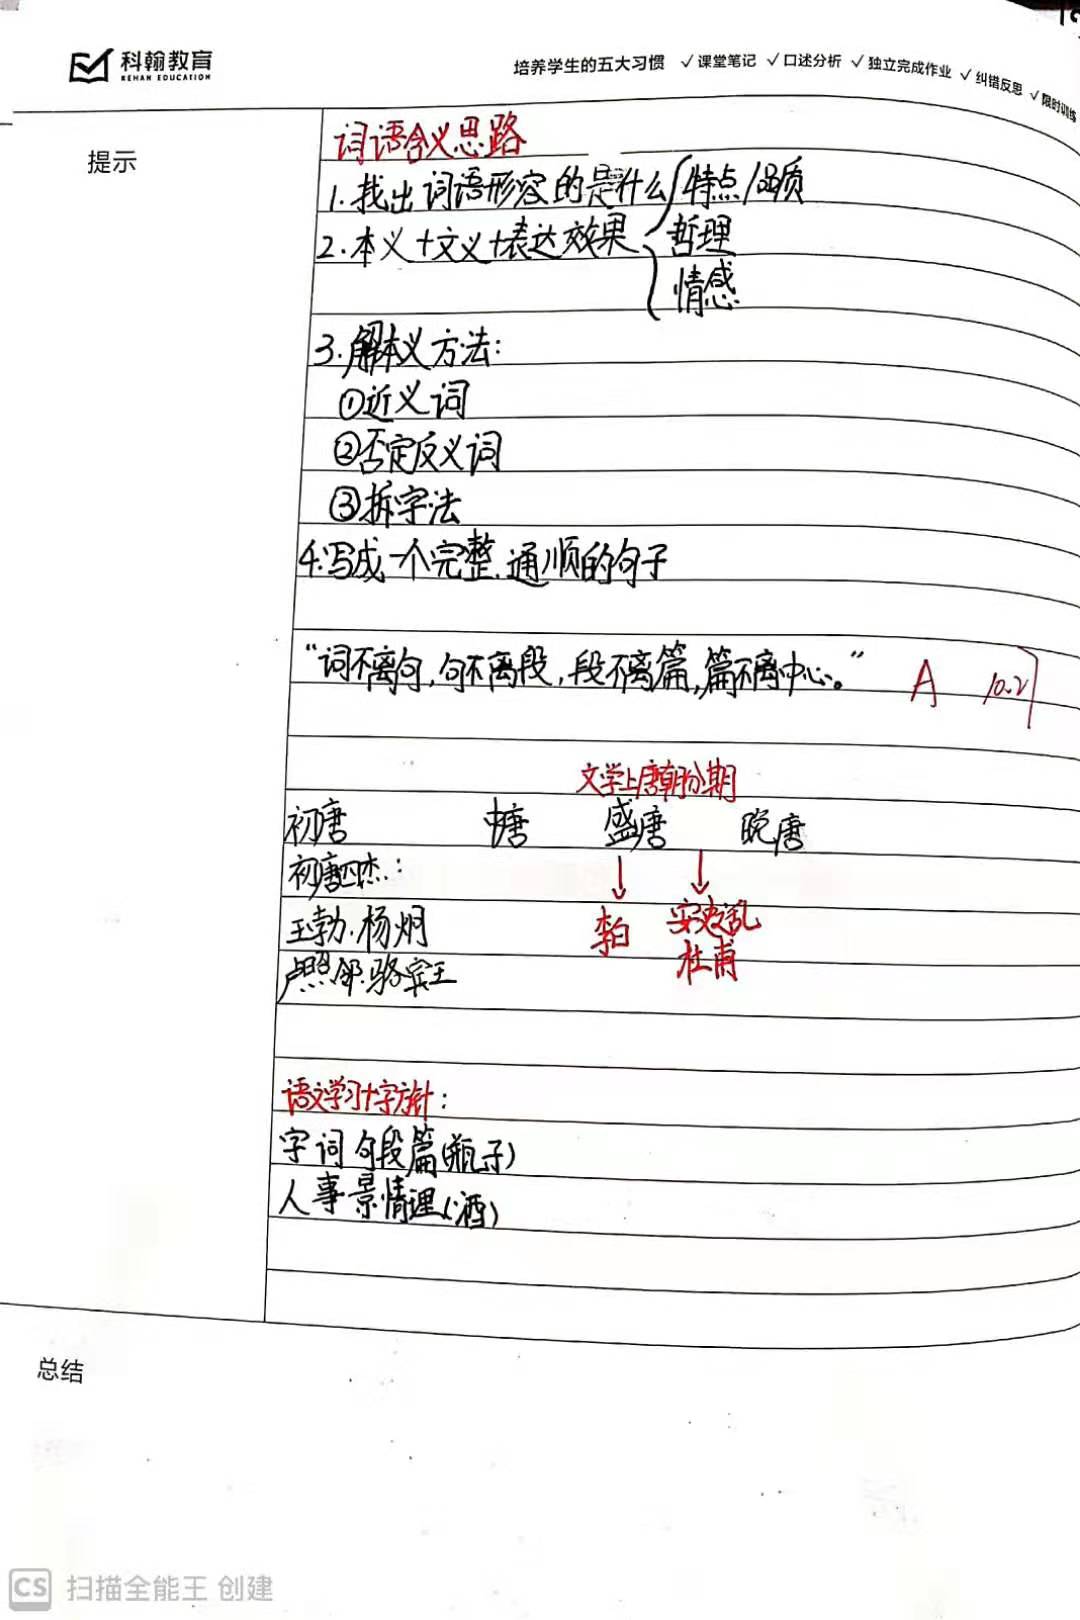 科翰教育
KEHAN EDUCATION
培养学生的五大习惯 √课堂笔记 √口述分析 √独立完成作业 √纠错反思 √限时训练
提示
词语含义思路
1.找出词语形容的是什么
2.本义+文义+表达效果 { 特点/品质
哲理
情感
3.解本义方法:
①近义词
②否定反义词
③拆字法
4.写成一个完整.通顺的句子
“词不离句,句不离段,段不离篇,篇不离中心。”
A 10.2
文学上唐朝分期
初唐 中唐 盛唐 晚唐
初唐四杰:
王勃.杨炯
卢照邻.骆宾王
↓ ↓
李白 安史之乱
杜甫
语文学习十字方针:
字词句段篇(瓶子)
人事景情理(酒)
总结
CS 扫描全能王 创建